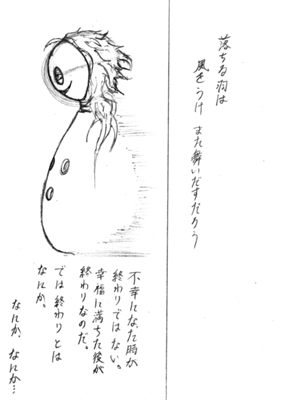 落ちる羽は
風をうけ また舞いだすだろう
不幸になった時が
終わりではない。
幸福に満ちた後が
終わりなのだ。
では終わりとは
なにか。
なにか、なにか…